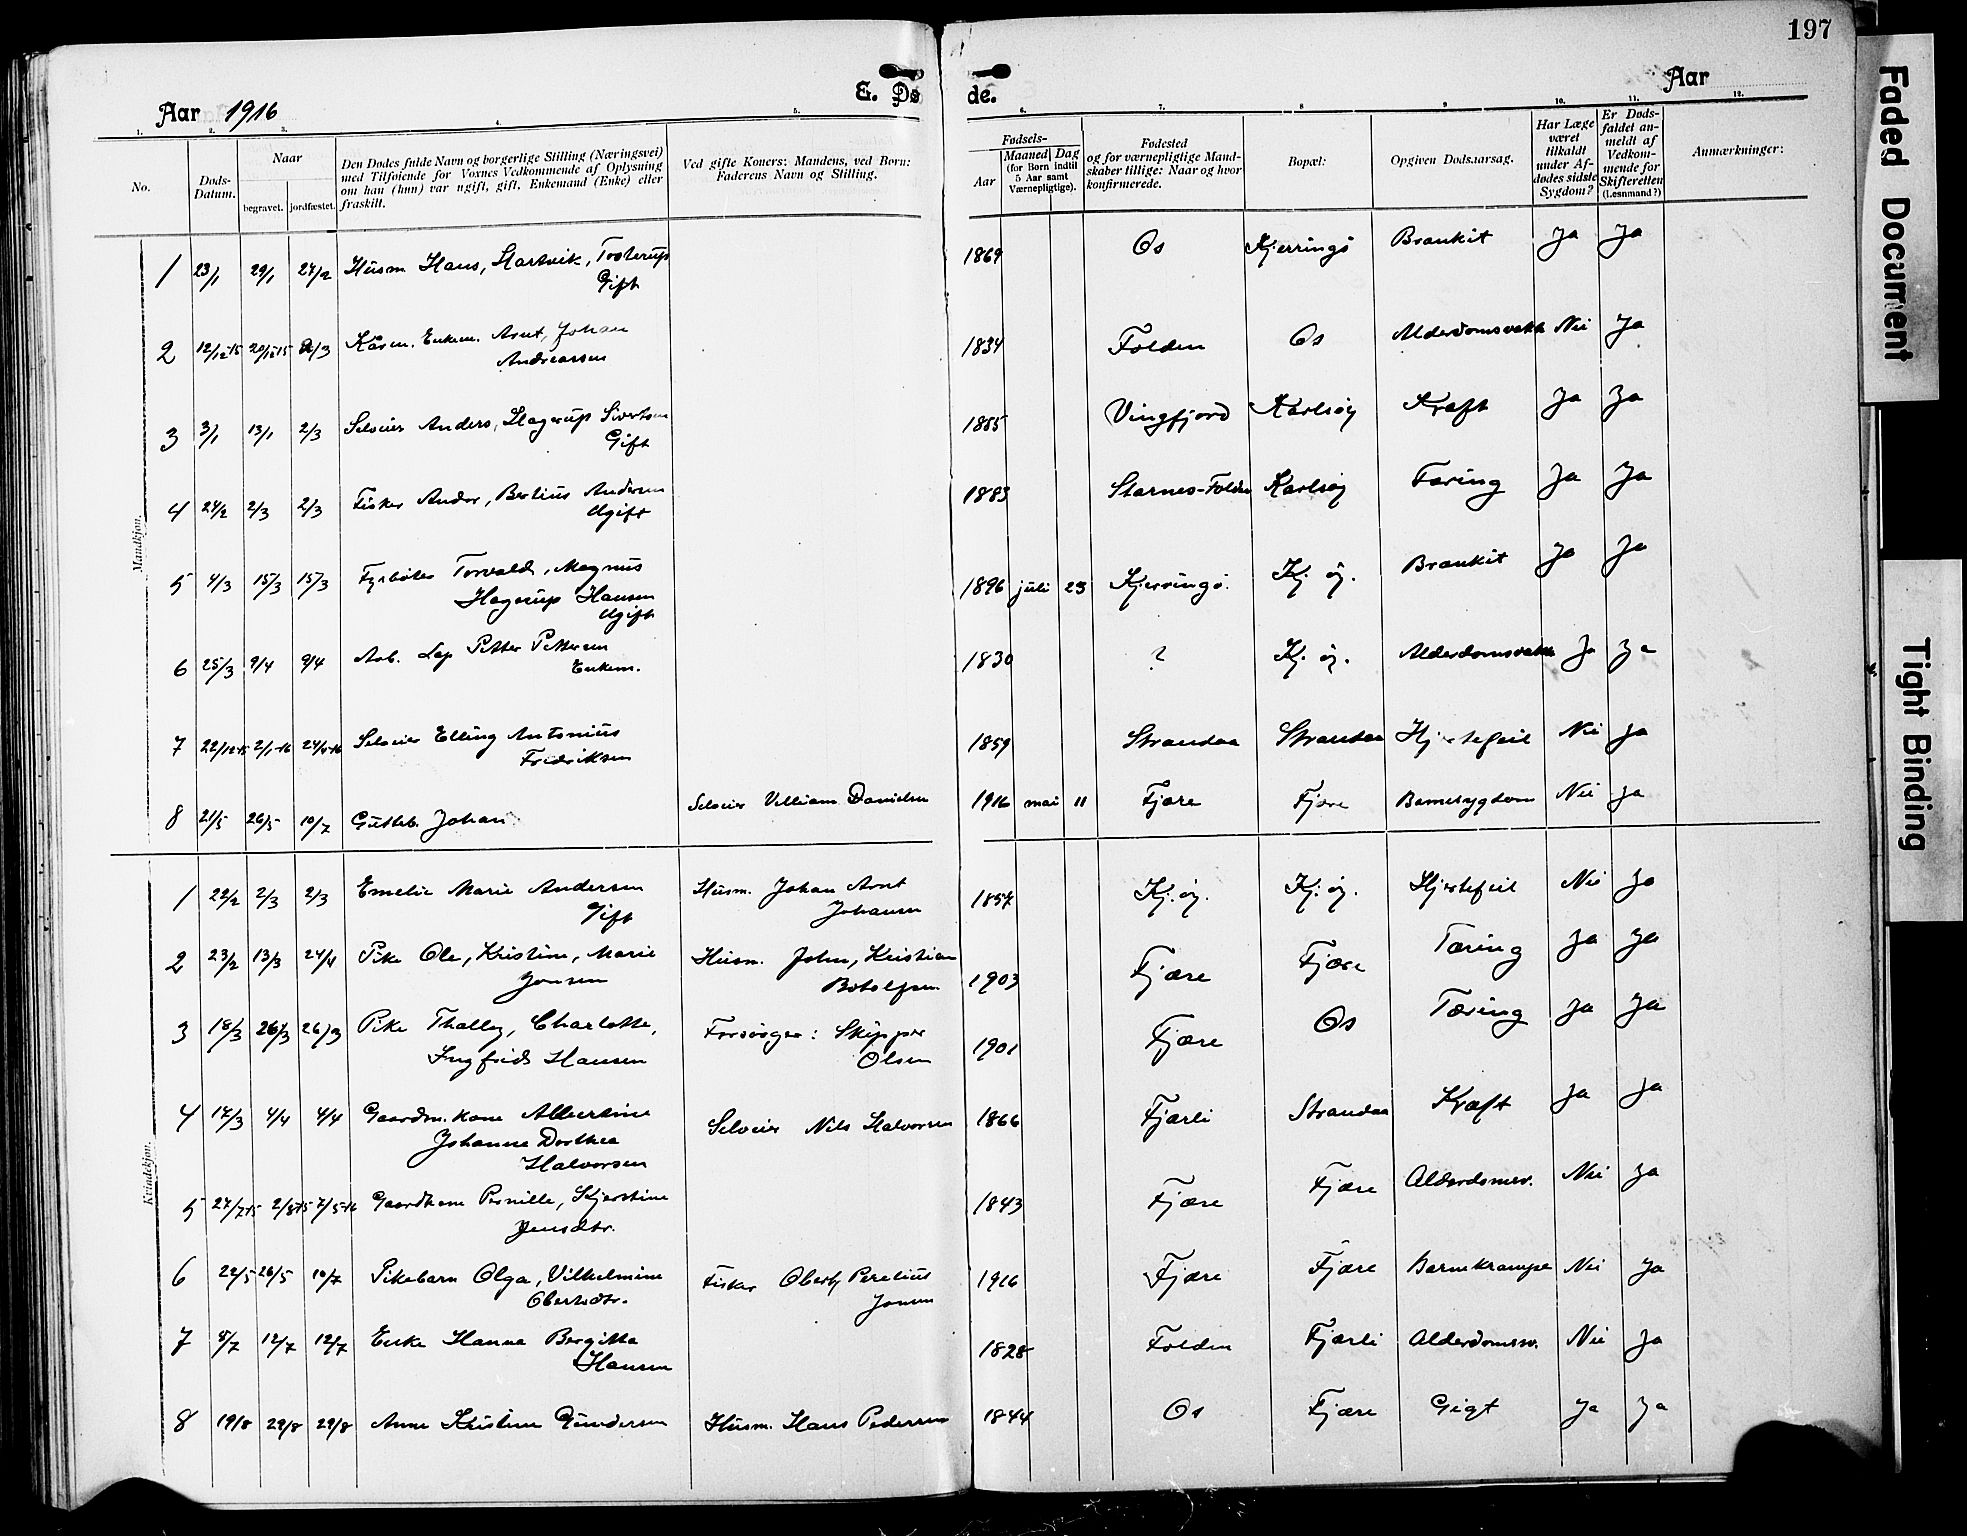 197
Aar 1916
E. Dø de.
Aar
1. 2. 3. 4. 5. 6. 7. 8 9 10. 11. 12.
No.
Døds-
Datum.
Naar
begravet. jordfæstet.
Den Dødes fulde Navn og borgerlige Stilling (Næringsvei)
med Tilføiende for Voxnes Vedkommende af Oplysning
om han (hun) var ugift, gift, Enkemand (Enke) eller
fraskilt.
Ved gifte Koner: Mandens, ved Børn:
Faderens Navn og Stilling.
Fødsels-
Aar
Maaned Dag
(for Børn indtil
5 Aar samt
Værnepligtige).
Fødested
og for værnepligtige Mand-
skaber tillige: Naar og hvor
konfirmerede.
Bopæl:
Opgiven Dødsaarsag.
Har Læge
været
tilkaldt
under Af-
dødes sidste
Sygdom?
Er Døds-
faldet an-
meldt af
Vedkom-
mende for
Skifteretten
(Lensmand?)
Anmærkninger:
Mandkjøn.
1 23/1 29/1 24/2 Husm Hans, Hartvik, Tosterup 1869 Os Kjerringø Bronkit Ja Ja
Gift
2 12/12-15 20/12-15 2/3 Kårm. Enkem. Arnt, Johan 1834 Folden Os Alderdomsvakh Nei Ja
Andreassen
3 3/1 13/1 2/3 Selveier Anders, Hagerup Sivertsen 1855 Vingfjord Karlsøy Kræft Ja Ja
Gift
4 24/2 2/3 2/3 Fisker Andor, Bertius Andersen 1883 Starnes-Folden Karlsøy Tæring Ja Ja
Ugift
5 4/3 15/3 15/3 Fyrbøter Torvald, Magnus 1896 juli 23 Kjerringø. Kj. øy. Bronkit Ja Ja
Hagerup Hansen
Ugift
6 25/3 9/4 9/4 Arb. Lap Petter Pettersen 1830 ? Kj. øy. Alderdomsvakh Ja Ja
Enkem.
7 22/12-15 2/1-16 24/4-16 Selveier Elling Antonius 1859 Strandaa Strandaa Hjertefeil Nei Ja
Fredriksen
8 21/5 26/5 10/7 Gutteb. Johan Selveier Villiam Danielsen 1916 mai 11 Fjære Fjære Barnesygdom Nei Ja
Kvindekjøn.
1 22/2 2/3 2/3 Emelie Marie Andersen Husm. Johan Arnt 1857 Kj. øy. Kj. øy. Hjertefeil Nei Ja
Gift Johansen
2 23/2 13/3 24/4 Pike Ole, Kristine, Marie Husm. John, Kristian 1903 Fjære Fjære Tæring Ja Ja
Jonsen Botolfsen
3 18/3 26/3 26/3 Pike Thalley, Charlotte, Forsørger: Skipper 1901 Fjære Os Tæring Ja Ja
Ingfrids Hansen Olsen
4 17/3 4/4 4/4 Gaardm. kone Albertine Selveier Nils Halvorsen 1866 Fjærli Strandaa Kræft Ja Ja
Johanna Dorthea
Halvorsen
5 27/7-15 2/8-15 7/5-16 Gaardkone Pernille, Kjerstine 1843 Fjære Fjære Alderdomsv. Nei Ja
Jensdtr.
6 22/5 26/5 10/7 Pikebarn Olga, Vilhelmine Fisker Obert Perelius 1916 Fjære Fjære Barnekrampe Nei Ja
Obertsdtr. Jonsen
7 8/7 12/7 12/7 Enke Hanna Bergitta 1828 Folden Fjærli Alderdomsv. Nei Ja
Hansen
8 19/8 29/8 29/8 Anne Kristine Gundersen Husm. Hans Pedersen 1844 Os Fjære Gigt Ja Ja
Faded Document
Tight Binding